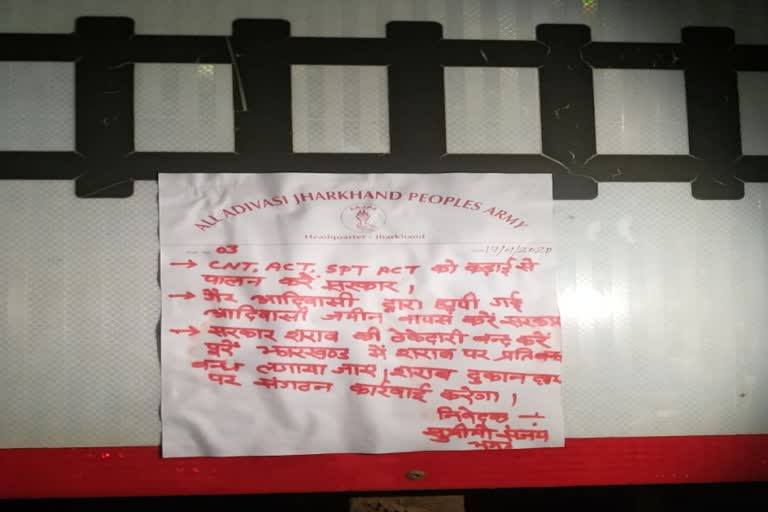 ALL ADIVASI JHARKHAND PEOPLES ARMY
Headquarter - Jharkhand
03
→ CNT, ACT, SPT ACT को कड़ाई से
पालन करें सरकार,
→ गैर आदिवासी द्वारा
आदिवासी जमीन वापस करें सरकार
→ सरकार शराब की ठेकेदारी बन्द करें
पुरें झारखण्ड में शराब पर
लगाया जाए, शराब दुकान
पर संगठन कार्रवाई करेगा,
निवेदक